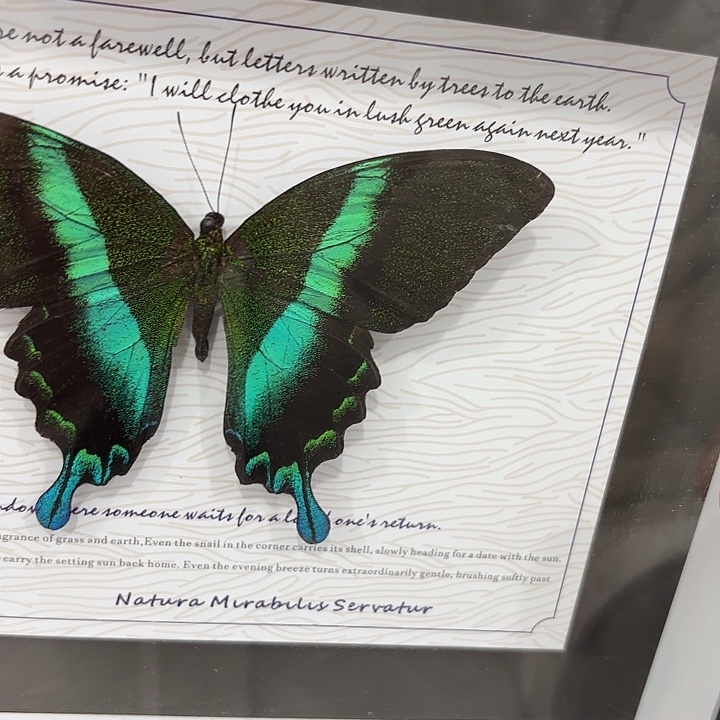 re not a farewell, but letters written by trees to the earth.
a promise: "I will clothe you in lush green again next year."
ere someone waits for a one's return.
agrance of grass and earth,Even the snail in the corner carries its shell, slowly heading for a date with the sun.
carry the setting sun back home. Even the evening breeze turns extraordinarily gentle, brushing softly past
Natura Mirabilis Servatur